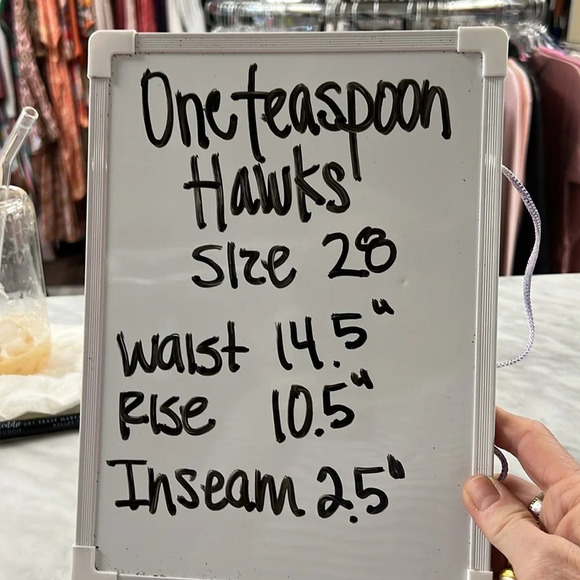 Oneteaspoon
Hawks
Size 28
Waist 14.5"
Rise 10.5"
Inseam 2.5"